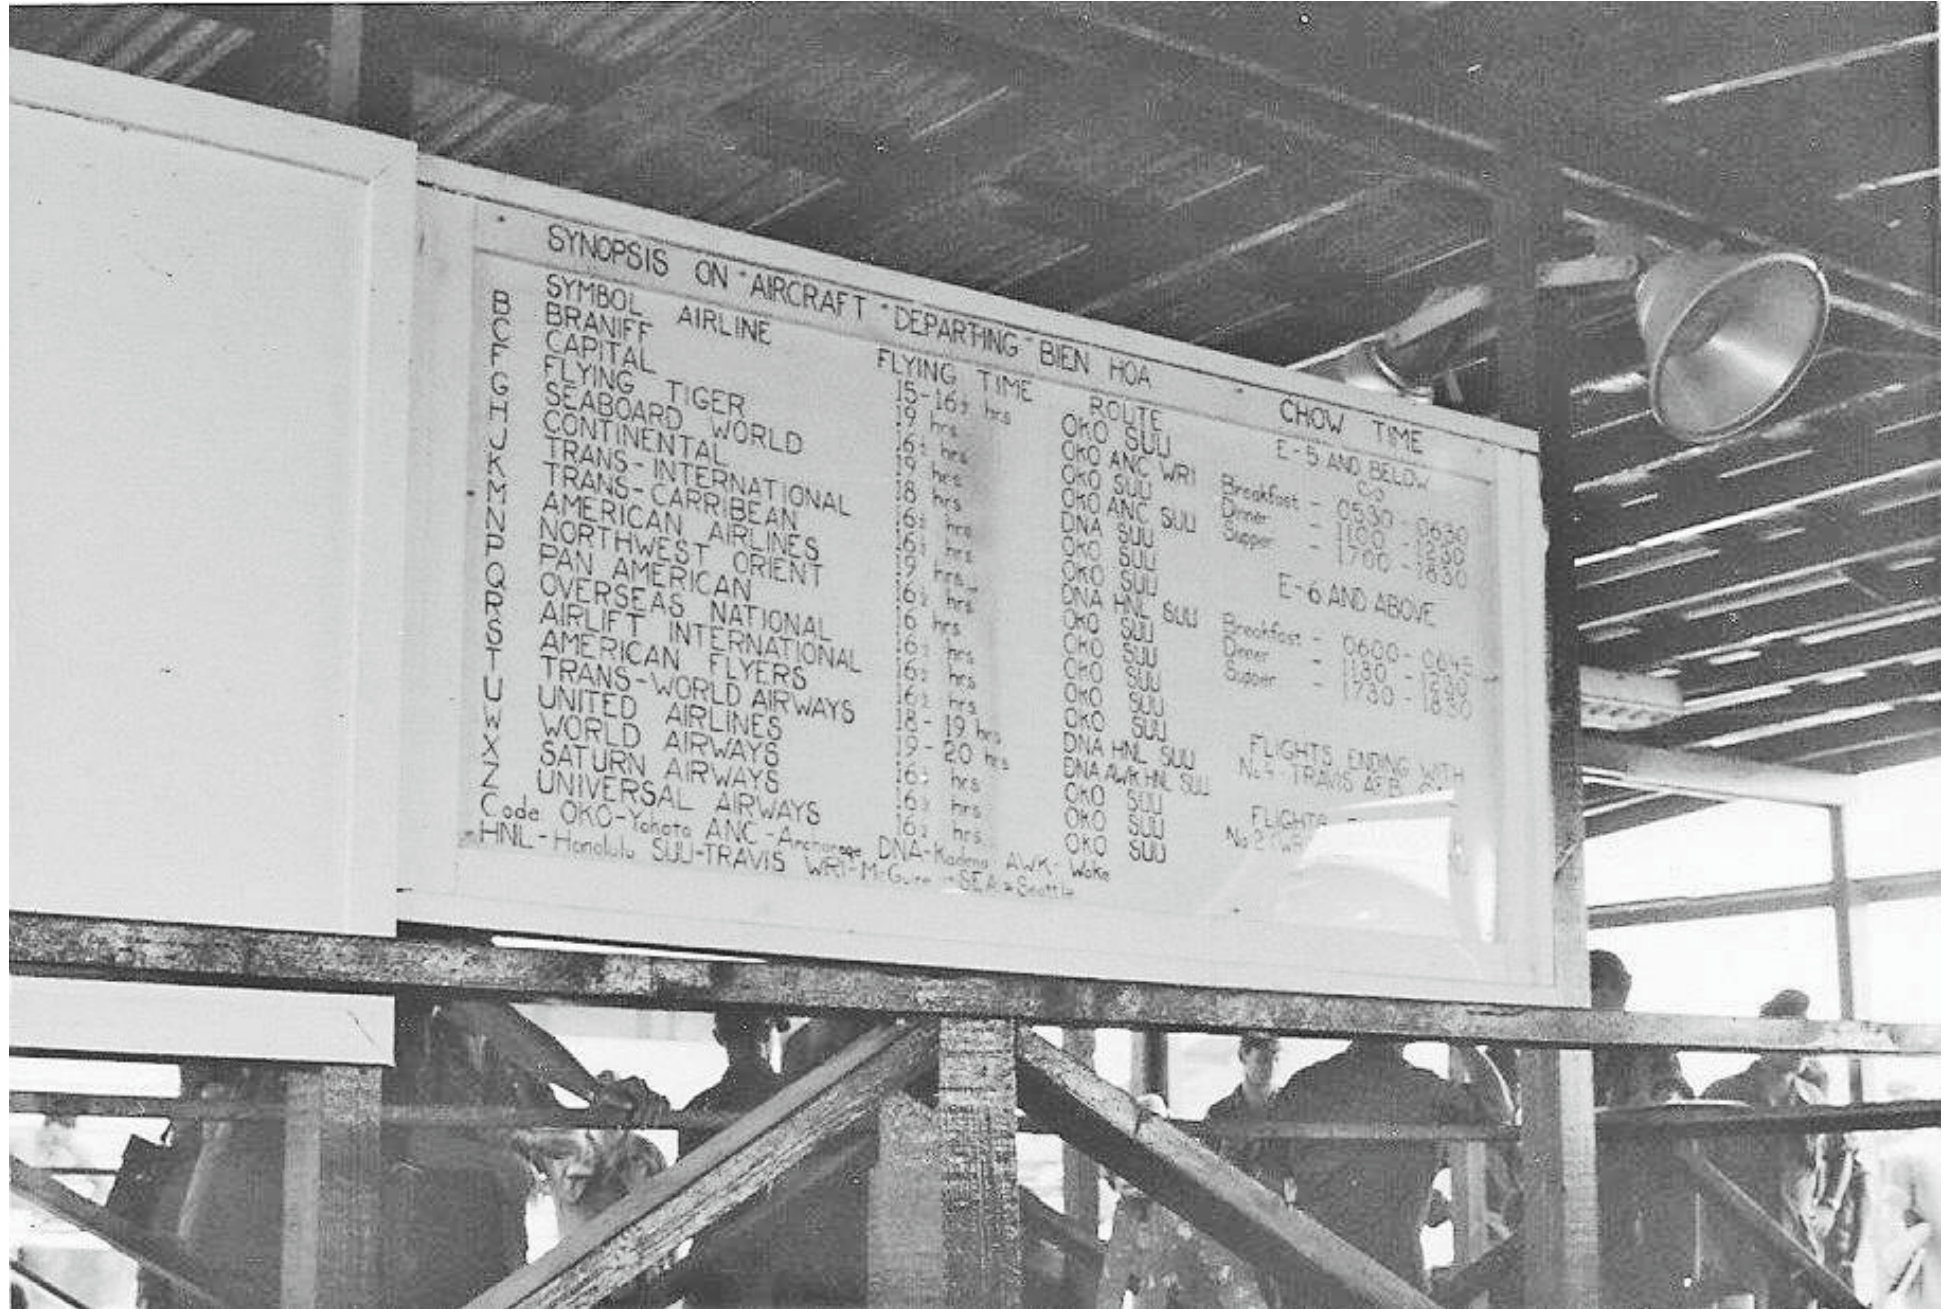 SYNOPSIS ON "AIRCRAFT "DEPARTING" BIEN HOA
SYMBOL AIRLINE FLYING TIME ROUTE
B BRANIFF 15-16½ hrs OKO SUU
C CAPITAL 19 hrs OKO ANC WRI
F FLYING TIGER 16½ hrs OKO SUU
G SEABOARD WORLD 19 hrs OKO ANC SUU
H CONTINENTAL 18 hrs DNA SUU
J TRANS-INTERNATIONAL 16½ hrs OKO SUU
K TRANS-CARRIBEAN 16½ hrs OKO SUU
M AMERICAN AIRLINES 19 hrs DNA HNL SUU
N NORTHWEST ORIENT 16½ hrs OKO SUU
P PAN AMERICAN 16 hrs OKO SUU
Q OVERSEAS NATIONAL 16½ hrs OKO SUU
R AIRLIFT INTERNATIONAL 16½ hrs OKO SUU
S AMERICAN FLYERS 16½ hrs OKO SUU
T TRANS-WORLD AIRWAYS 18-19 hrs DNA HNL SUU
U UNITED AIRLINES 19-20 hrs DNA AWK HNL SUU
W WORLD AIRWAYS 16½ hrs OKO SUU
X SATURN AIRWAYS 16½ hrs OKO SUU
Z UNIVERSAL AIRWAYS 16½ hrs OKO SUU
Code OKO-Yokota ANC-Anchorage DNA-Kadena AWK-Wake
HNL-Honolulu SUU-TRAVIS WRI-McGuire SEA-Seattle
CHOW TIME
E-5 AND BELOW
Breakfast - 0530-0630
Dinner - 1100-1230
Supper - 1700-1830
E-6 AND ABOVE
Breakfast - 0600-0645
Dinner - 1130-1230
Supper - 1730-1830
FLIGHTS ENDING WITH
No 4-TRAVIS AFB
FLIGHTS
No 2